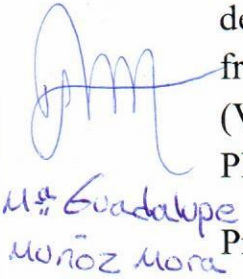 de
fr
(V
Pl
Mª Guadalupe
Muñoz Mora
P